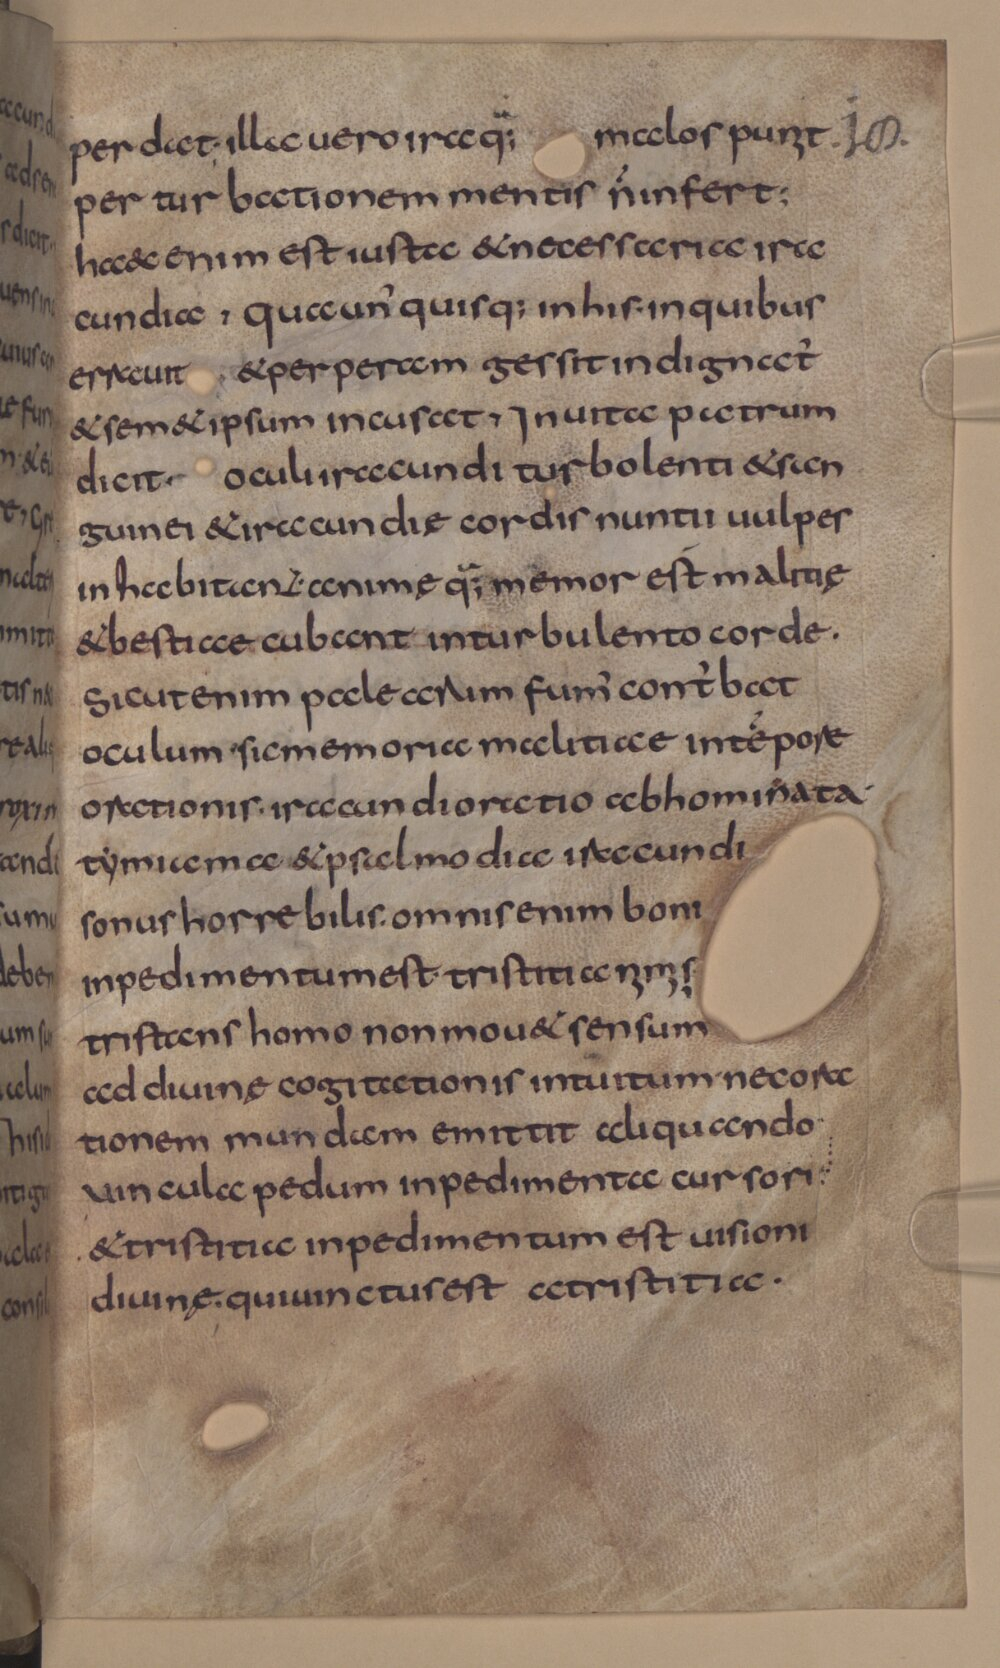 perdat. illa uero ira q̄; malos punit. 18.
per turbationem mentis n̄ infert;
haec enim est iusta & necessaria ira
cundia, Qua un̄ quisq; in his. in quibus
errauit & perperam gessit indignat̄
& sem&ipsum incusat, In uita patrum
dicit. oculi iracundi turbolenti & san
guinei & iracundię cordis nuntii uulpes
inhabitant animę q̄; memor est malitię
& bestiae cubant in turbulento corde.
Sicut enim palearum fum̄ cont̄bat
oculum. sic memoria malitiae in tēpore
orationis. iracundi oratio abhominata
tymiama & psalmodia iracundi
sonus horrebilis. omnis enim boni
inpedimentum est. tristitia nimis
tristans homo non mou& sensum
ad diuinę cogitationis intuitum nec ora
tionem mundam emittit aliquando
uincula pedum inpedimenta cursori
& tristitia inpedimentum est uisioni
diuinę. qui uinctus est a tristitia.